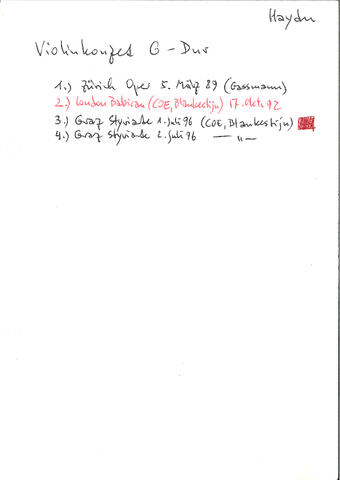 Haydn
Violinkonzert G-Dur
1.) Zürich Oper 5. März 89 (Gassmann)
2.) London Babican (COE, Blankestijn) 17. Okt. 92
3.) Graz Styriarte 1. Juli 96 (COE, Blankestijn)
4.) Graz Styriarte 2. Juli 96 — " —